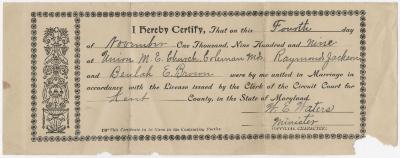 I Hereby Certify, That on this Fourth day
of November One Thousand, Nine Hundred and Nine
at Union M. E. Church, Coleman Md. Raymond Jackson
and Beulah E. Brown were by me united in Marriage in
accordance with the License issued by the Clerk of the Circuit Court for
Kent County, in the State of Maryland.
W. E. Waters
Minister
This Certificate to be Given to the Contracting Parties.
(OFFICIAL CHARACTER)